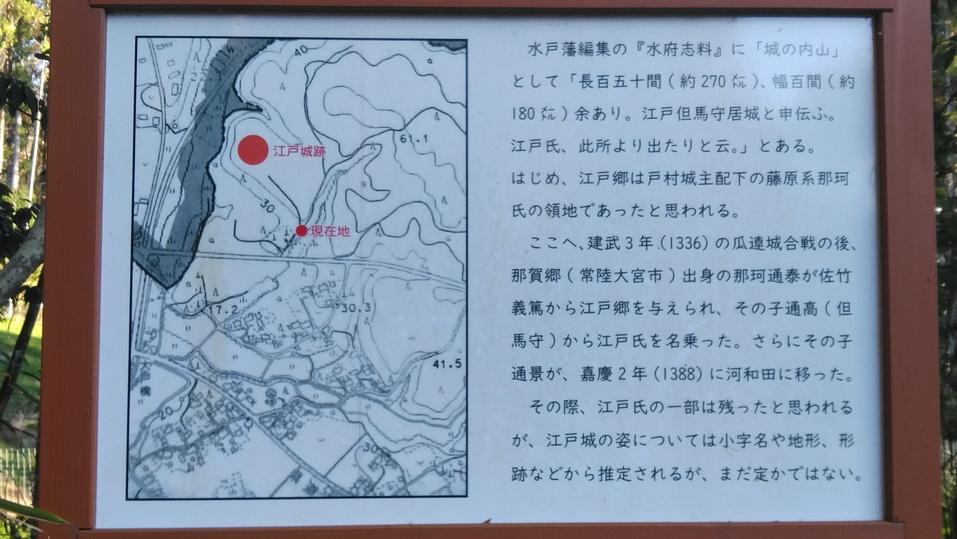 水戸藩編集の『水府志料』に「城の内山」
として「長百五十間(約270㍍)、幅百間(約
180㍍)余あり。江戸但馬守居城と申伝ふ。
江戸氏、此所より出たりと云。」とある。
はじめ、江戸郷は戸村城主配下の藤原系那珂
氏の領地であったと思われる。
ここへ、建武3年(1336)の瓜連城合戦の後、
那賀郷(常陸大宮市)出身の那珂通泰が佐竹
義篤から江戸郷を与えられ、その子通高(但
馬守)から江戸氏を名乗った。さらにその子
通景が、嘉慶2年(1388)に河和田に移った。
その際、江戸氏の一部は残ったと思われる
が、江戸城の姿については小字名や地形、形
跡などから推定されるが、まだ定かではない。
40
61.1
江戸城跡
30
現在地
17.2
30.3
41.5
20
30